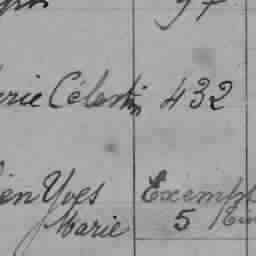 97
rie Célestin 432
ien Yves Exempt
Marie 5